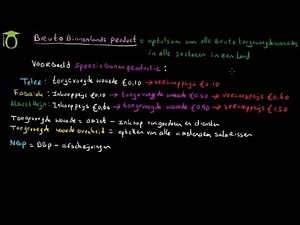 Bruto Binnenlands Product = optelsom van alle bruto toegevoegde waarde
in alle sectoren in een land
Voorbeeld Sperziebonenproductie:
Teler: toegevoegde waarde €0,10 → verkoopprijs €0,10
Fabriek: Inkoopprijs €0,10 → toegevoegde waarde €0,50 → verkoopprijs €0,60
Albert Heijn: Inkoopprijs €0,60 → toegevoegde waarde €0,90 → verkoopprijs €1,50
Toegevoegde waarde = omzet - Inkoop van goederen en diensten
Toegevoegde waarde overheid = optellen van alle ambtenaren salarissen
NBP = BBP - afschrijvingen